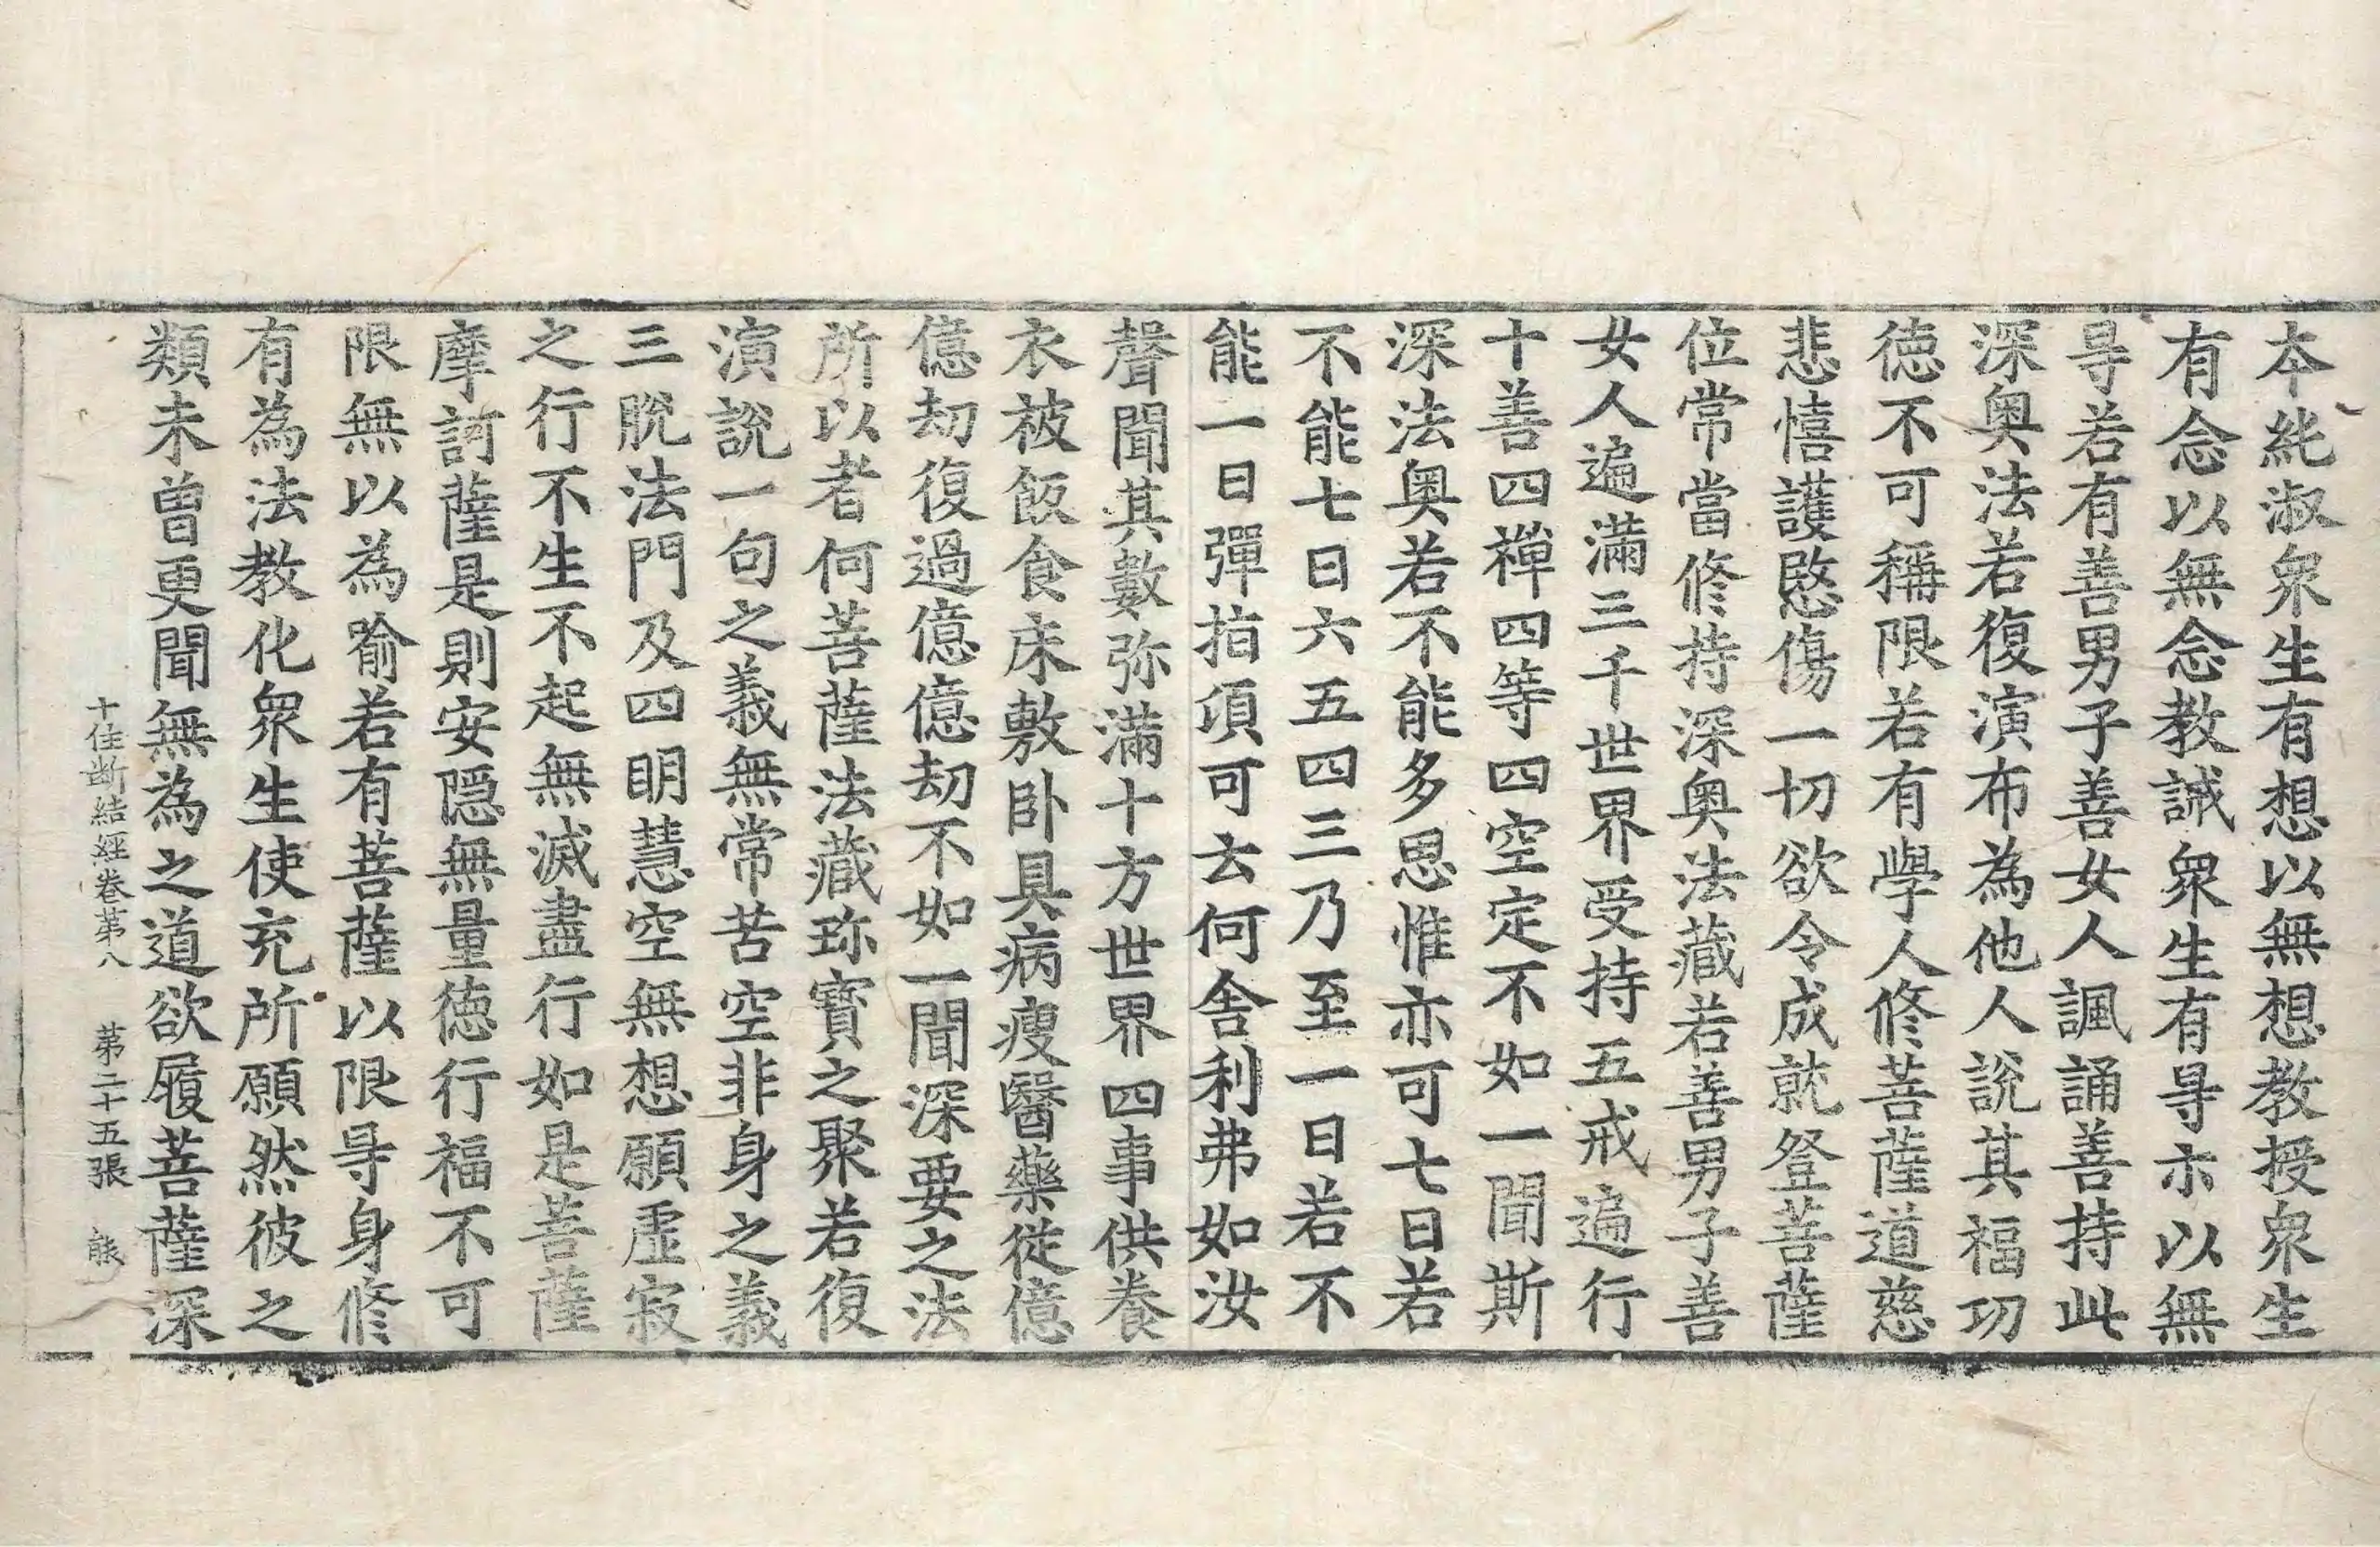 本純淑衆生有想以無想教授衆生
有念以無念教誡衆生有㝵亦以無
㝵若有善男子善女人諷誦善持此
深奥法若復演布為他人說其福功
德不可稱限若有學人修菩薩道慈
悲憘護愍傷一切欲令成就登菩薩
位常當修持深奥法藏若善男子善
女人遍滿三千世界受持五戒遍行
十善四禪四等四空定不如一聞斯
深法奥若不能多思惟亦可七日若
不能七日六五四三乃至一日若不
能一日彈指項可去何舍利弗如汝
聲聞其數弥滿十方世界四事供養
衣被飯食床敷卧具病瘦醫藥從億
億劫復過億億劫不如一聞深要之法
所以者何菩薩法藏珎寶之聚若復
演說一句之義無常苦空非身之義
三脫法門及四明慧空無想願虛寂
之行不生不起無滅盡行如是菩薩
摩訶薩是則安隱無量德行福不可
限無以為喻若有菩薩以限㝵身修
有為法教化衆生使充所願然彼之
類未曽更聞無為之道欲履菩薩深
十住断結經卷第八 第二十五張 熊